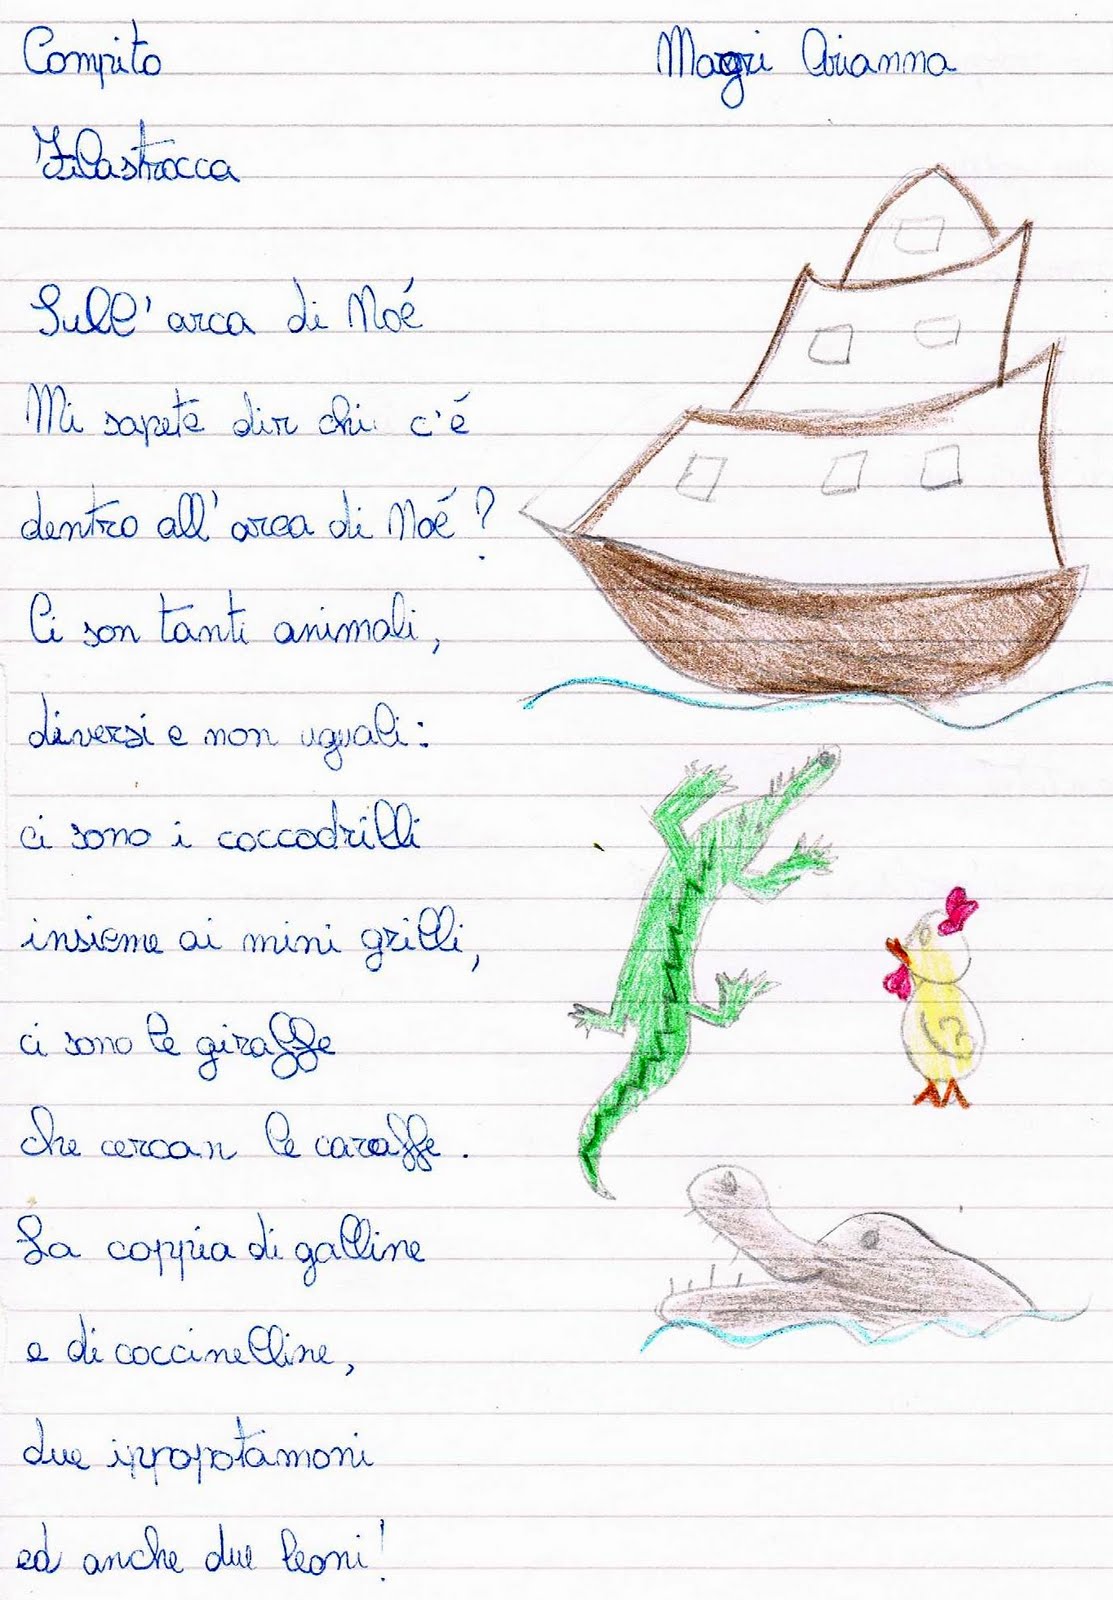 Compito Magri Arianna
Filastrocca
Sull' arca di Noé
Mi sapete dir chi c'é
dentro all' arca di Noé?
Ci son tanti animali,
diversi e non uguali:
ci sono i coccodrilli
insieme ai mini grilli,
ci sono le giraffe
che cercan le caraffe.
La coppia di galline
e di coccinelline,
due ippopotamoni
ed anche due leoni!